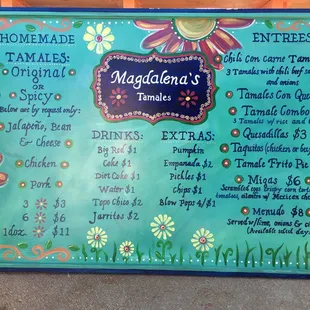 HOMEMADE
TAMALES:
Original
or
Spicy
Below are by request only:
Jalapeño, Bean
& Cheese
Chicken
Pork
3 $3
6 $6
1 doz $11
Magdalena's
Tamales
DRINKS:
Big Red $1
Coke $1
Diet Coke $1
Water $1
Topo Chico $2
Jarritos $2
EXTRAS:
Pumpkin
Empanada $2
Pickles $1
Chips $1
Blow Pops 4/$1
ENTREES
Chili Con Carne Tam
3 Tamales with chili beef
and onions
Tamales Con Que
Tamale Combo
3 Tamales w/ rice and
Quesadillas $3
Taquitos (chicken or
Tamale Frito Pie
Migas $6
Scrambled eggs crispy corn
tomatoes, onions w/ Mexican
Menudo $8
Served w/ lime, onions & ci
(Available select days)